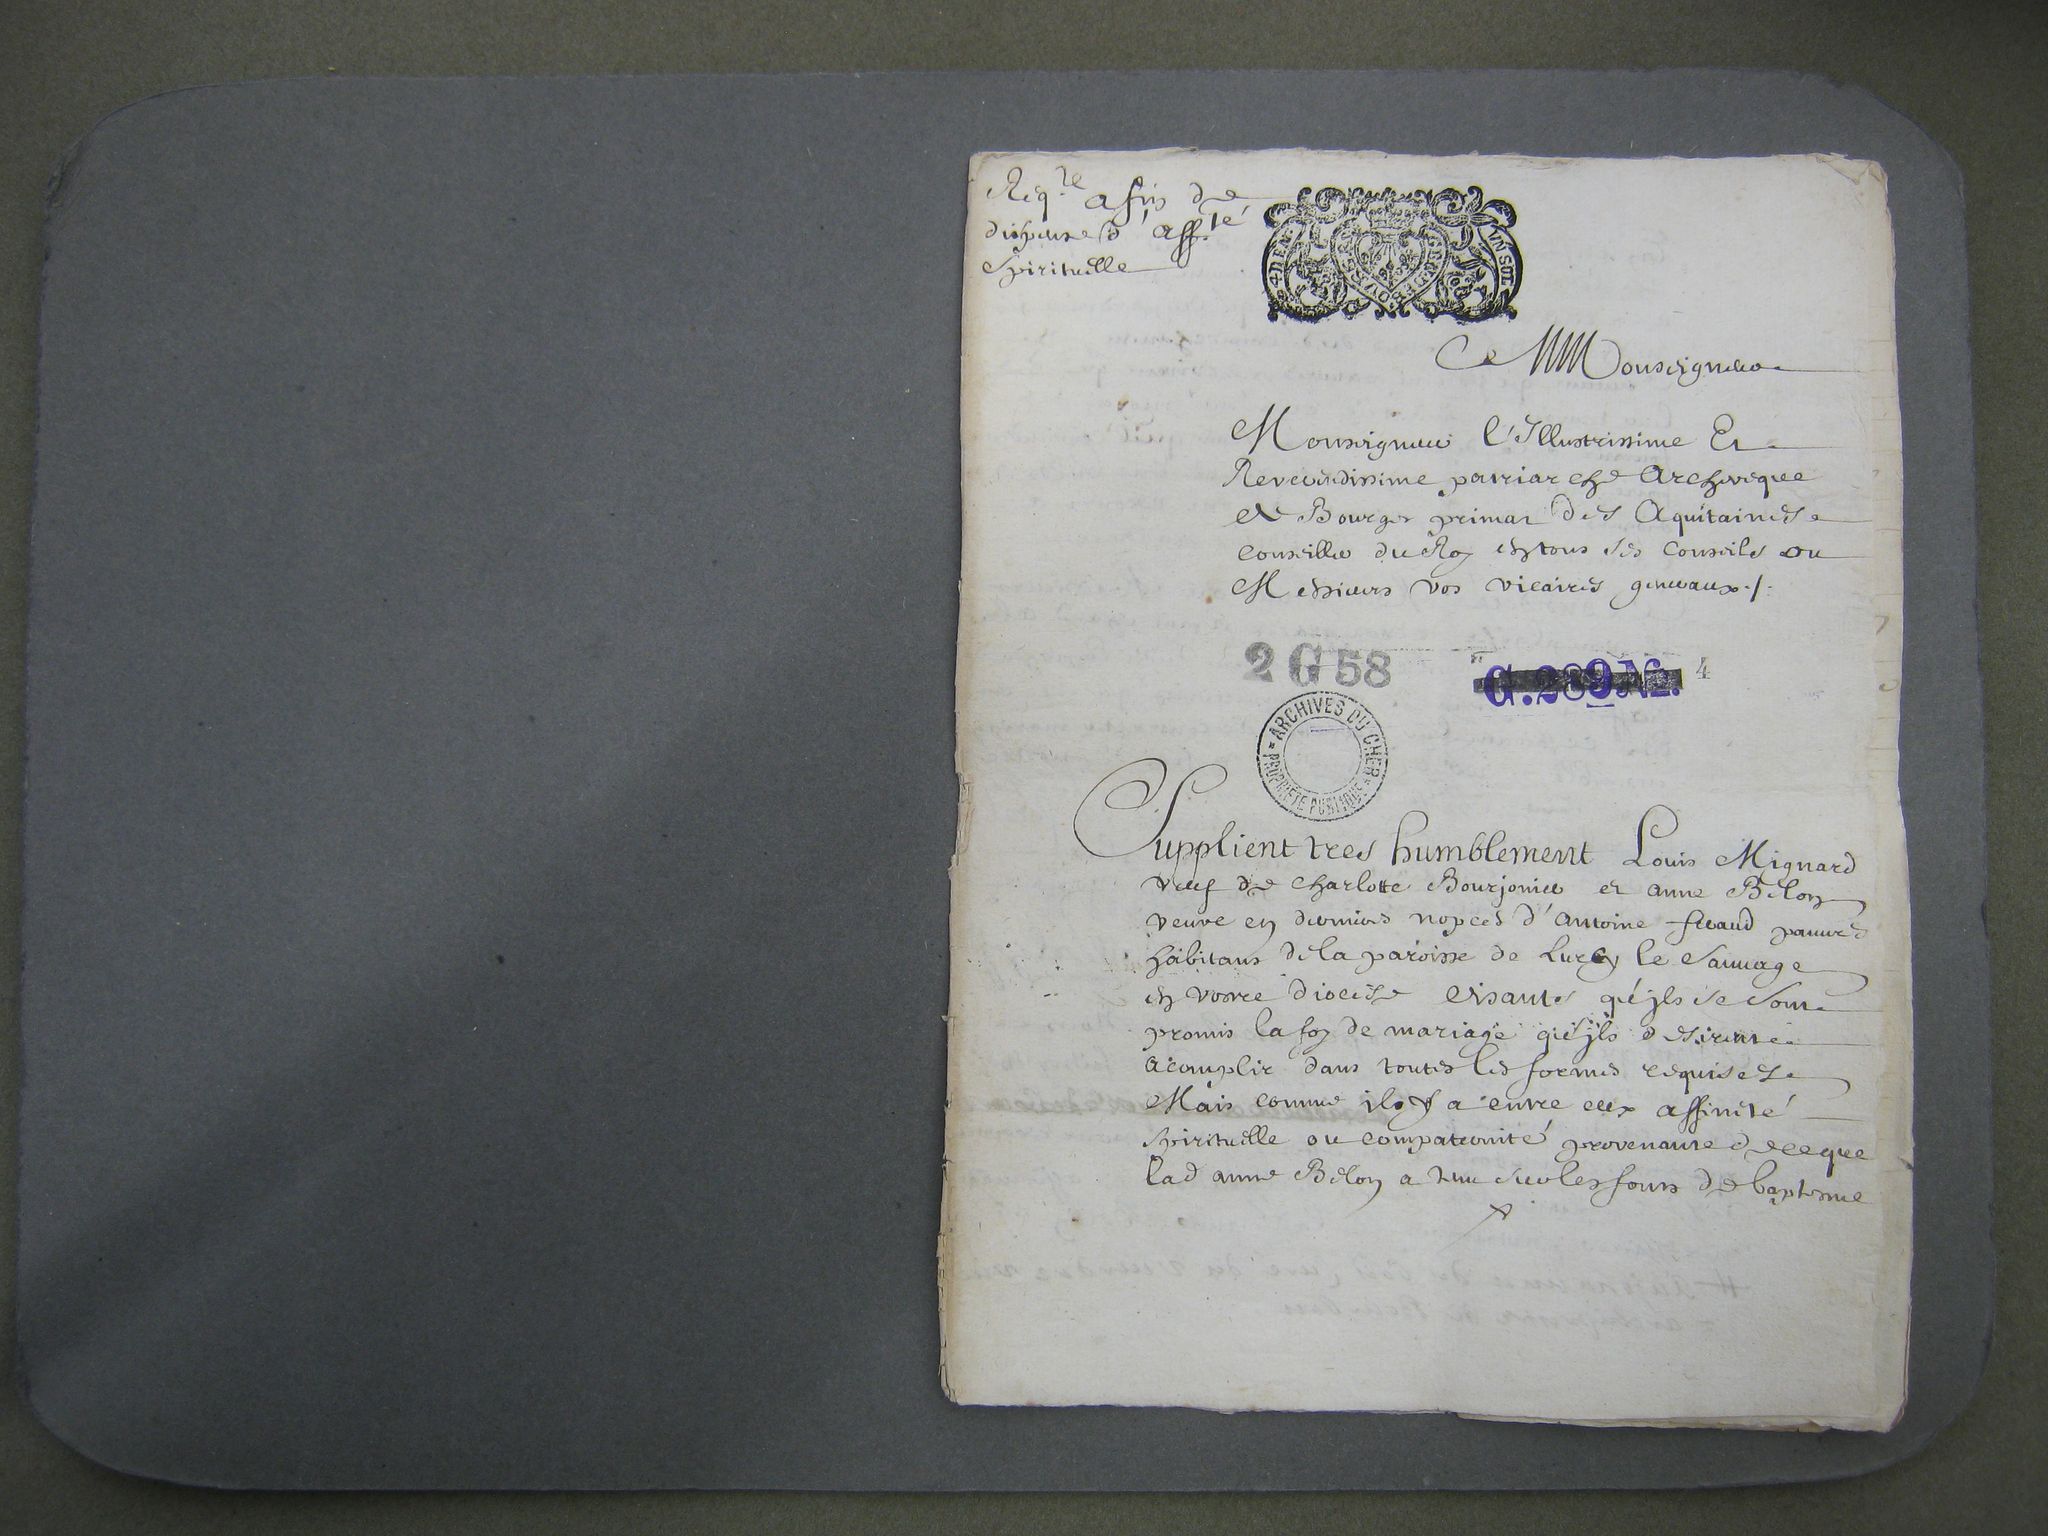 Req.te afin de
dispense d'aff.té
Spirituelle
VN SOL
4 DEN.
A Monseigneur
Monseigneur l'Illustrissime Et
Reverendissime patriarche Archeveque
de Bourges primat Des Aquitaines
Conseiller du Roy en tous ses Conseils ou
Messieurs vos vicaires generaux./.
2 G 58
G. 289 N.
4
ARCHIVES DU CHER
PROPRIÉTÉ PUBLIQUE
Supplient tres humblement Louis Mignard
veuf de Charlotte Bourjonier et anne Belon
veuve en dernieres nopces d'antoine feraud pauvres
habitans de la paroisse de Lurcy le Sauvage
en vostre diocese disants qu'jls se sont
promis la foy de mariage qu'jls desirent
acomplir dans toutes les formes requises
Mais comme il y a entre eux affinité
spirituelle ou compaternité provenante de ce que
lad anne Belon a tenu sur les fonts de baptesme